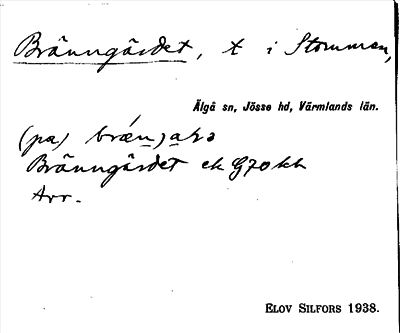 Bränngärdet, t i Stommen,
Älgå sn, Jösse hd, Värmlands län.
(pa)
Bränngärdet ek G70kk
Arr.
ELOV SILFORS 1938.